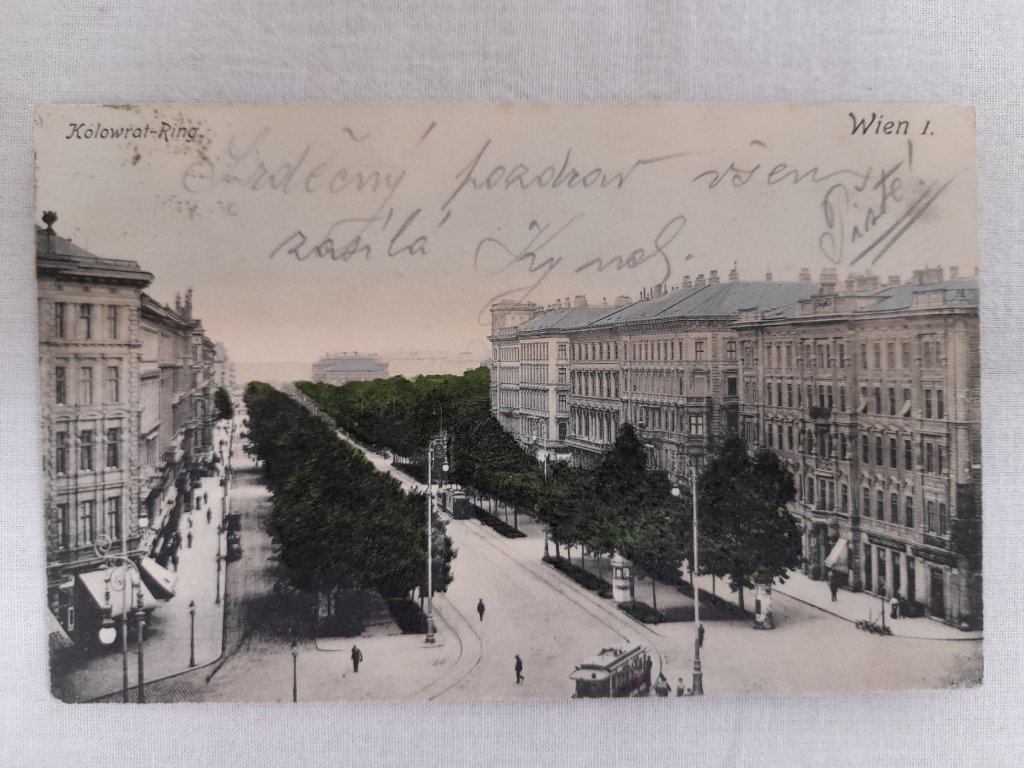 Kolowrat-Ring.
Wien 1.
Srdečný pozdrav všem
zasílá
Pište!